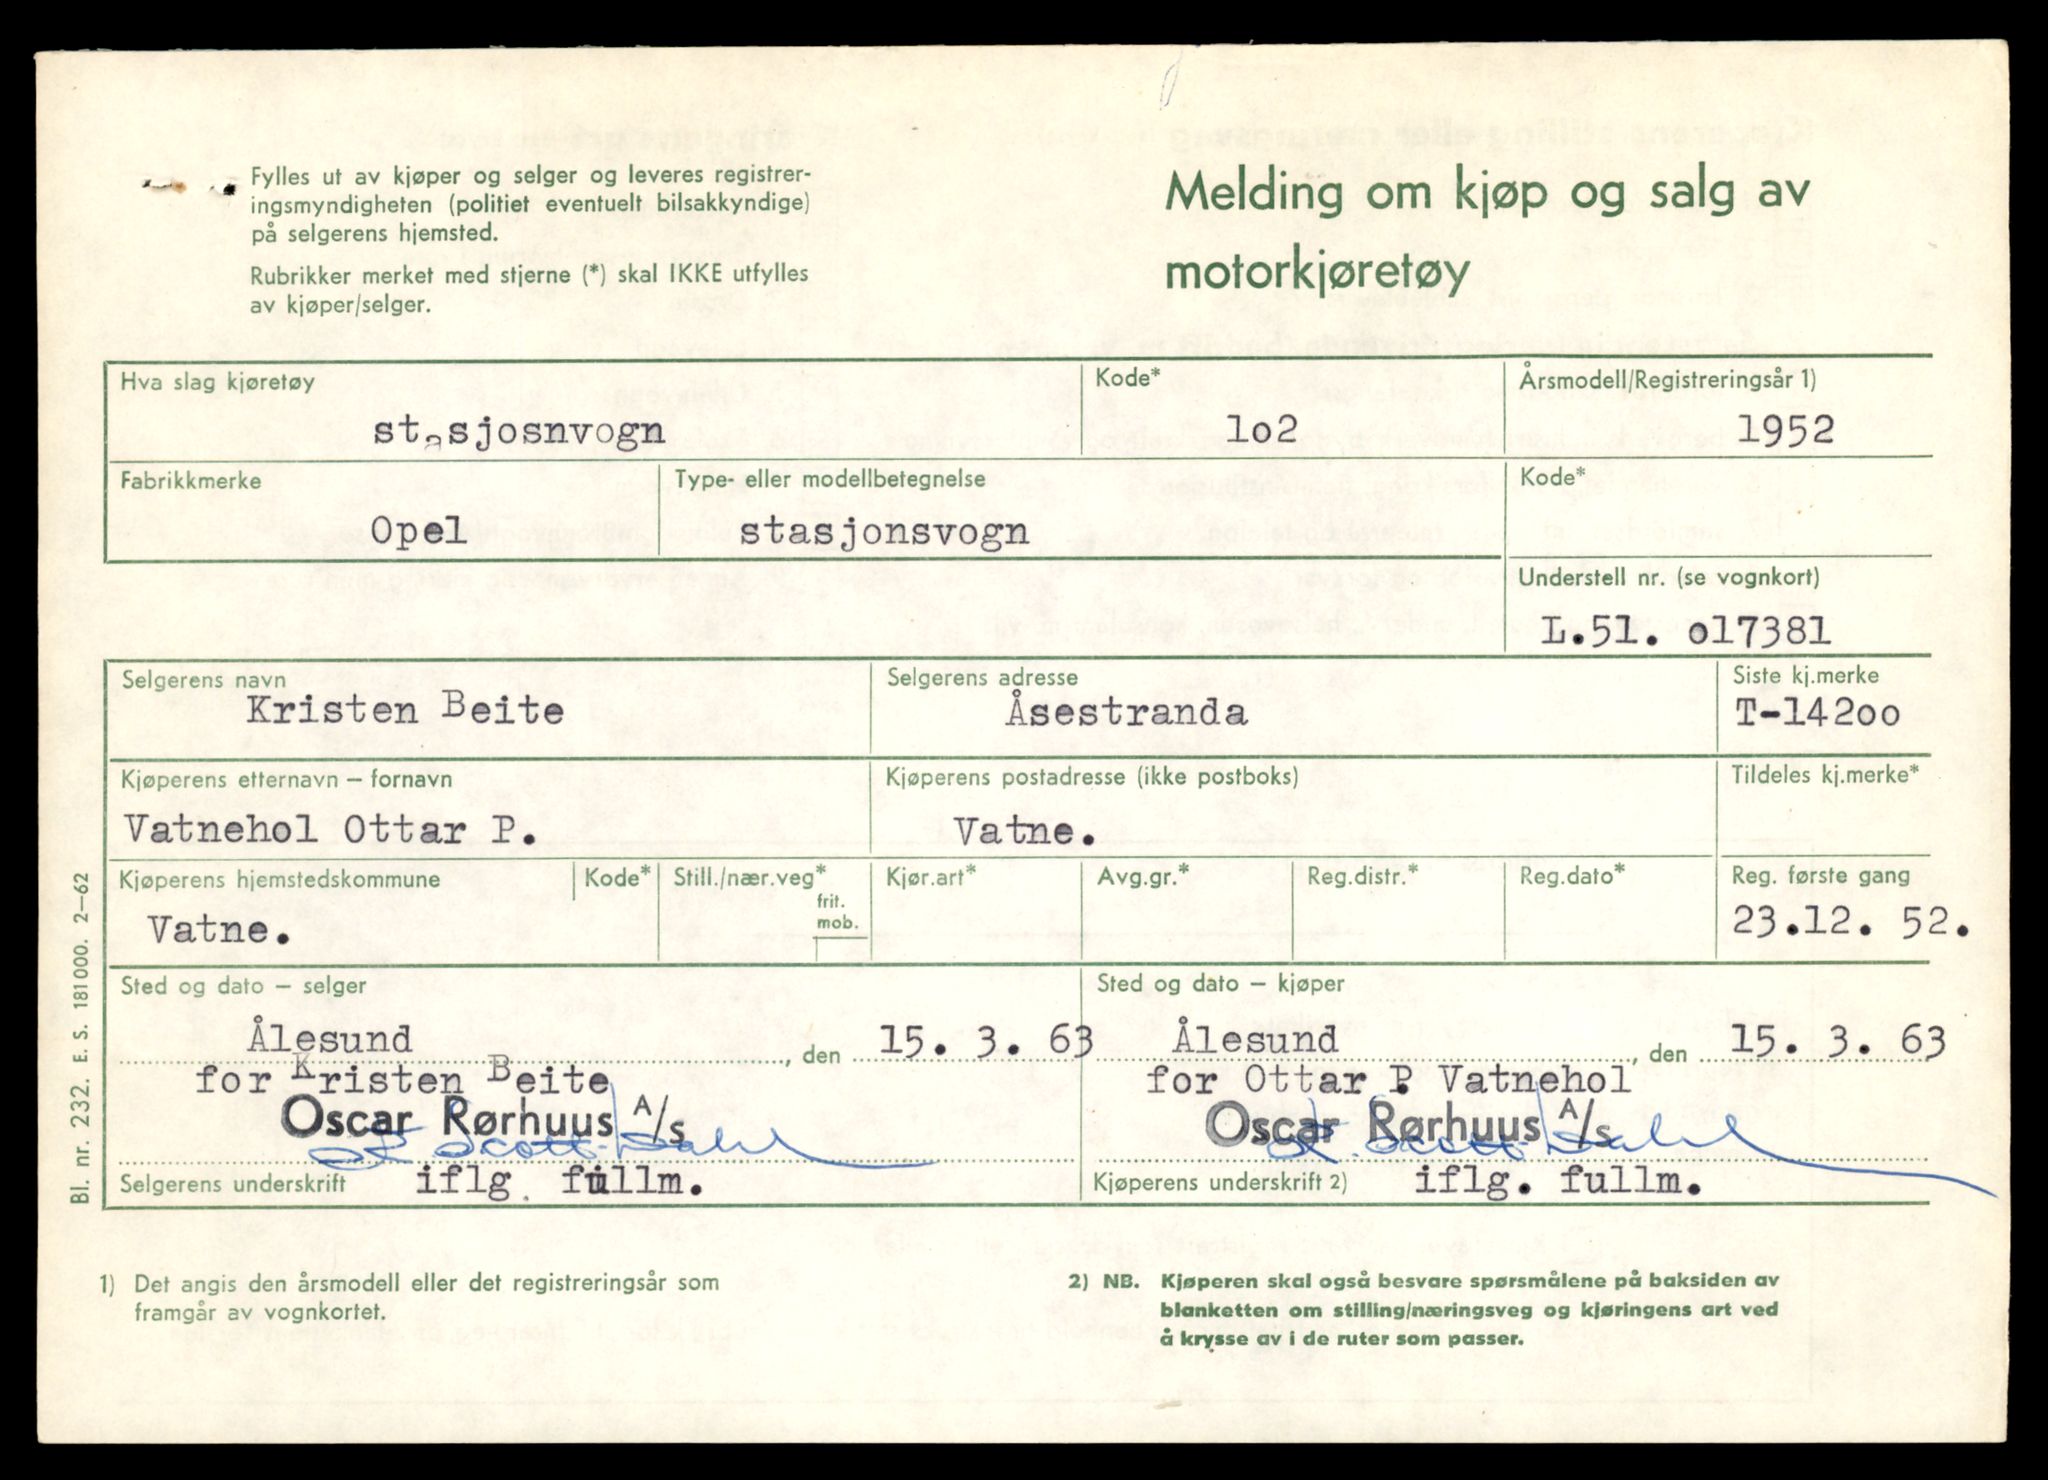 Fylles ut av kjøper og selger og leveres registrer-
ingsmyndigheten (politiet eventuelt bilsakkyndige)
på selgerens hjemsted.
Rubrikker merket med stjerne (*) skal IKKE utfylles
av kjøper/selger.
Melding om kjøp og salg av
motorkjøretøy
Hva slag kjøretøy Kode* Årsmodell/Registreringsår 1)
stasjosnvogn lo2 1952
Fabrikkmerke Type- eller modellbetegnelse Kode*
Opel stasjonsvogn
Understell nr. (se vognkort)
L.51. ol7381
Selgerens navn Selgerens adresse Siste kj.merke
Kristen Beite Åsestranda T-142oo
Kjøperens etternavn – fornavn Kjøperens postadresse (ikke postboks) Tildeles kj.merke*
Vatnehol Ottar P. Vatne.
Kjøperens hjemstedskommune Kode* Still./nær.veg* Kjør.art* Avg.gr.* Reg.distr.* Reg.dato* Reg. første gang
frit.
mob.
Vatne. 23.12. 52.
Sted og dato – selger Sted og dato – kjøper
Ålesund, den 15. 3. 63 Ålesund, den 15. 3. 63
for Kristen Beite for Ottar P. Vatnehol
Oscar Rørhuus A/s Oscar Rørhuus A/s
Selgerens underskrift iflg. fullm. Kjøperens underskrift 2) iflg. fullm.
1) Det angis den årsmodell eller det registreringsår som
framgår av vognkortet.
2) NB. Kjøperen skal også besvare spørsmålene på baksiden av
blanketten om stilling/næringsveg og kjøringens art ved
å krysse av i de ruter som passer.
Bl. nr. 232. E. S. 181 000. 2–62